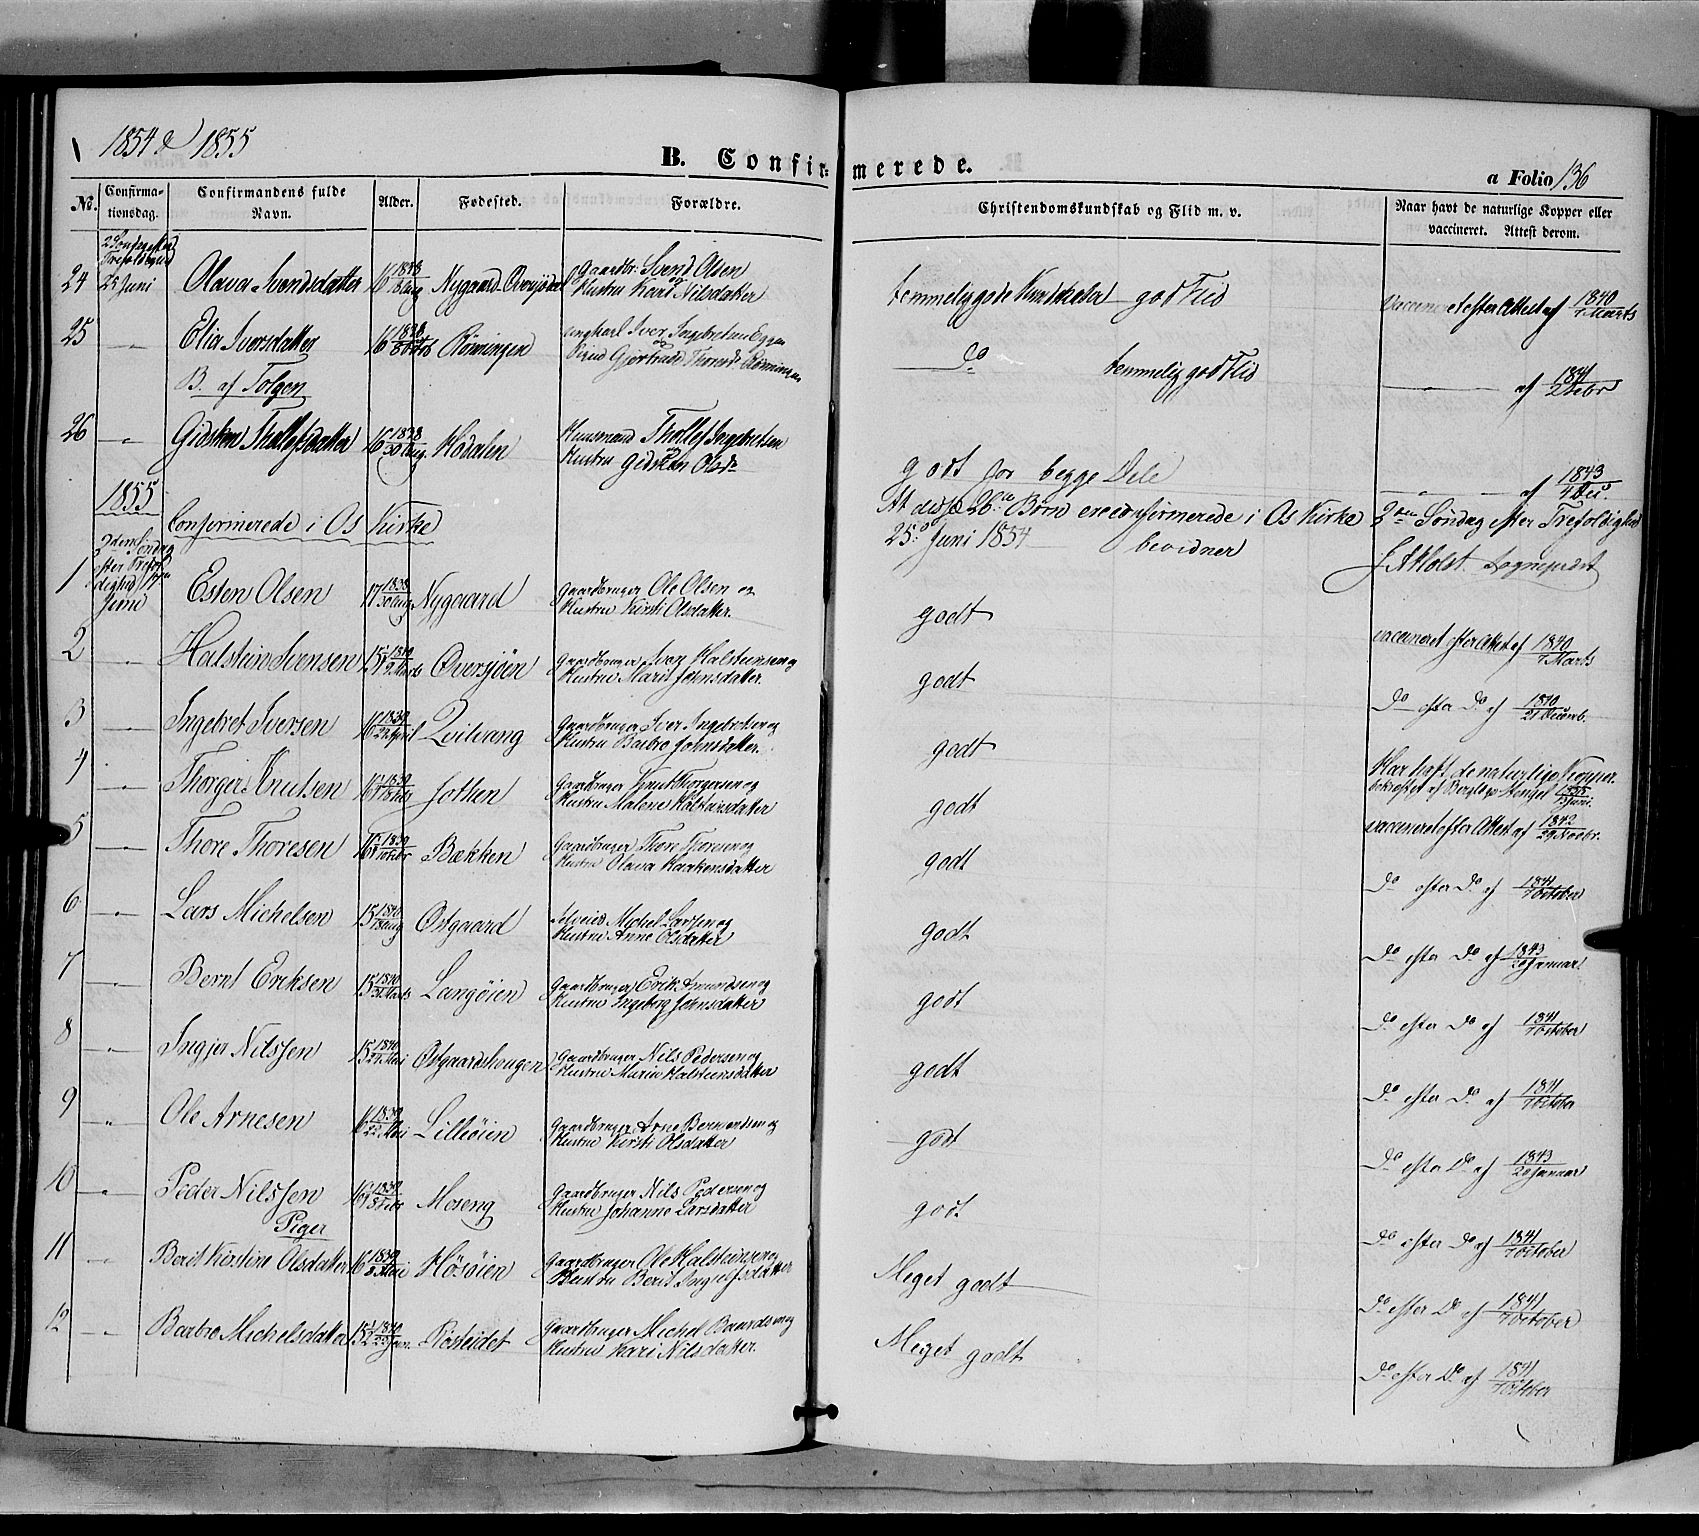 1854 & 1855
B. Confirmerede.
a Folio 136
No. Confirmationsdag. Confirmandens fulde Navn. Alder. Fødested. Forældre. Christendomskundskab og Flid m. v. Naar havt de naturlige Kopper eller vaccineret. Attest derom.
2 Søndag efter Trefoldighed
24 25 Juni Olava Svendsdatter 16 1838 Aug Nygaard Øversjødal Gaardbr: Svend Olsen og Hustru Kari Nilsdatter temmelig gode Kundskaber god Flid vaccineret efter Attest af 1840 7 Marts
25 Elia Iversdatter 16 1838 Rønningen ungkarl Iver Ingebretsen Eggen og Pigen Gjertrude Thorsdr Rønningen do temmelig god Flid af 1841 2 Febr
B. af Tolgen
26 Gidsken Thollefsdatter 16 1838 30 Aug. Hodalen Huusmand Thollef Ingebretsen Hustru Gidsken Olsdr godt for begge Dele af 1843 4 Dec.
1855
Confirmerede i Os Kirke
At disse 26 Børn ere confirmerede i Os Kirke 2den Søndag efter Trefoldighed
25de Juni 1854 bevidner
Holst Sognepræst
2den Søndag efter Trefoldighed 17 Juni
1 Esten Olsen 17 1838 30 Aug Nygaard Gaardbruger Ole Olsen og Hustru Kirsti Olsdatter. godt vaccineret efter Attest af 1840 7 Marts
2 Halstein Ivensen 15 1840 9 Marts Øversjøen Gaardbruger Iver Halsteensen og Hustru Marit Johnsdatter. godt Do efter Do af 1840 21 Decemb.
3 Ingebret Iversen 16 1839 22 April Qvilvang Gaardbruger Iver Ingebretsen og Hustru Barbro Johnsdatter. godt Har haft de naturlige Kopper. bekræftet af Berglæge Mengel 1855 Juni.
4 Thorger Knutsen 16 1839 Jothen Gaardbruger Knut Thorgersen og Hustru Malene Halsteinsdatter godt vaccineret efter Attest af 1842 29 Novbr.
5 Thore Thoresen 16 1839 Bækken Gaardbruger Thore Thoresen og Hustru Olava Haakensdatter godt Do efter Do af 1841 7 October
6 Lars Michelsen 15 1840 Aug Østgaard Selveier Michel Larssen og Hustru Anne Olsdatter godt Do efter Do af 1843 20 Januar
7 Bernt Eriksen 15 1840 31 Marts Langøien Gaardbruger Erik Amundsen og Hustru Ingeborg Johnsdatter godt Do efter Do af 1841 7 October
8 Ingjer Nilssen 15 1840 Mai Østgaardshougen Gaardbruger Nils Pedersen og Hustru Maria Halsteinsdatter godt Do efter Do af 1841 7 October
9 Ole Arnesen 16 1839 22 Mai Lilleøien Gaardbruger Arne Berntsen og Hustru Kirsti Olsdatter godt Do efter Do af 1843 20 Januar
10 Peder Nilssen 16 1839 Febr Moseng Gaardbruger Nils Pedersen og Hustru Johanne Larsdatter godt Do efter Do af 1841 7 October
Piger
11 Berit Kirstine Olsdatter 16 1839 Mai Høsøien Gaardbruger Ole Halsteinsen og Hustru Berit Ingulfsdatter Meget godt Do efter Do af 1841 7 October
12 Barbro Michelsdatter 15 1840 22 Jan. Røsteidet Gaardbruger Michel Baardsen og Hustru Kari Nilsdatter. Meget godt Do efter Do af 1841 7 October